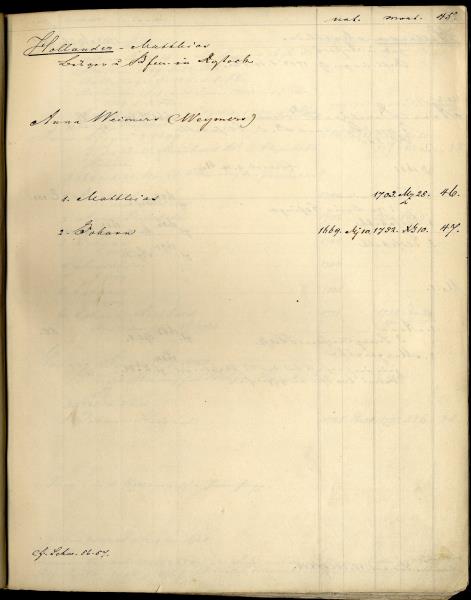 nat. mort. 45.
Hollander - Matthias
Bürger u. in Rostock
Anna Weimers (Meymers)
1. Matthias 1703. 28. 46.
2. Johann 1669. 10. 1732. Xb 10. 47.